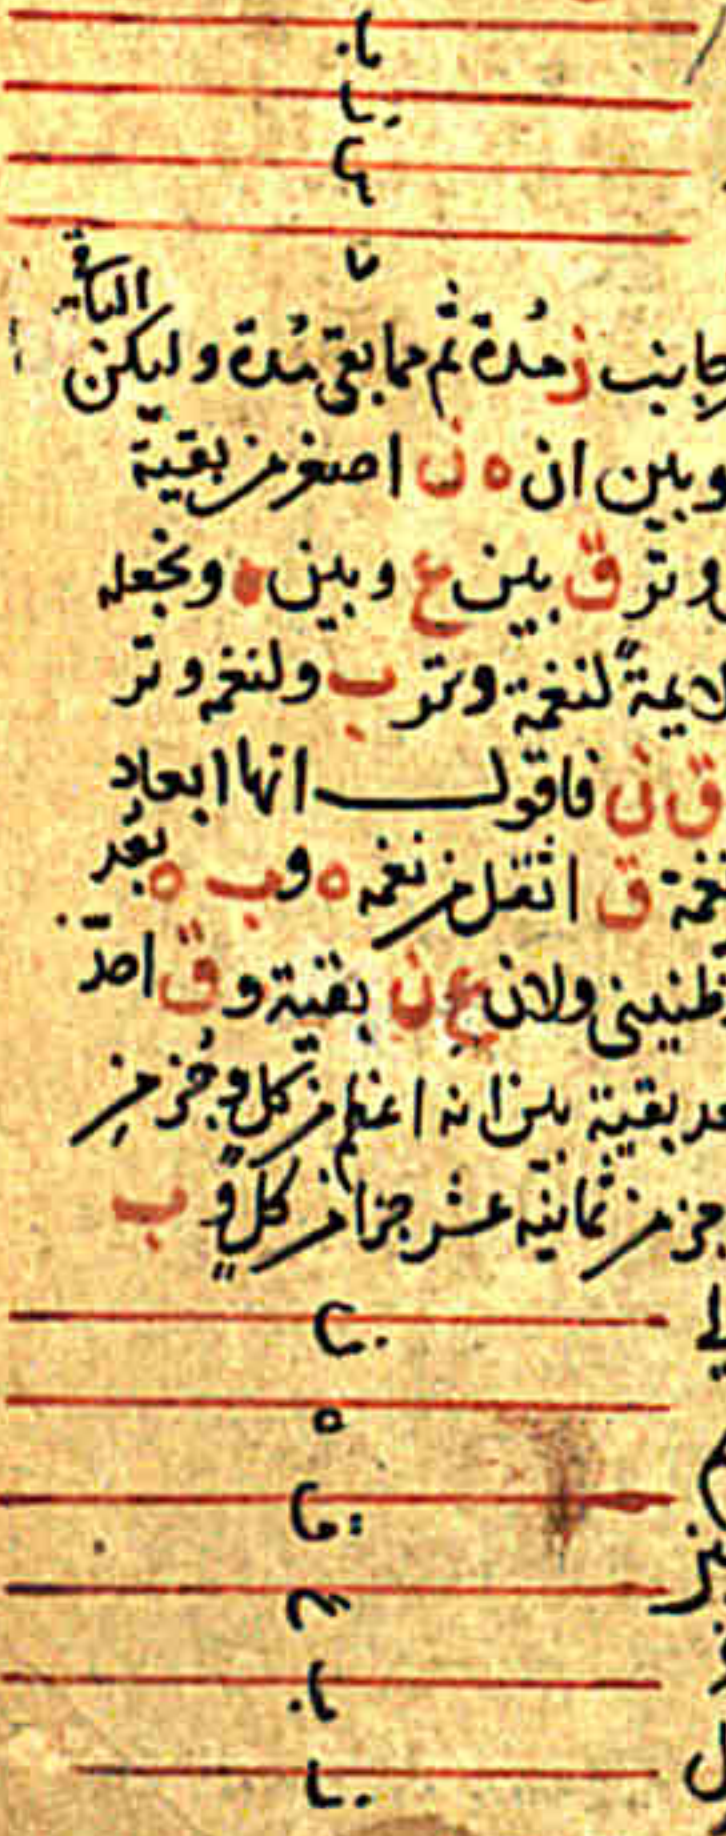 ب
ن
س
جانب ز مدة ثم مما بقى مدة وليكن
الباقية
وبين ان ه ن اصغر من بقية
وتر ق بين ع وبين ه ونجعله
لايمة لنغمة وتر ب ولنغم وتر
ق ن فاقول انها ابعاد
نغمة ق اثقل من نغمه ه و ب ه بعد
طنينى ولان ع ن بقية و ق احد
بقية بين انه اعظم من كل وجزء من
جزء من ثمانية عشر جزا من كل و ب
ن
ه
ق
ع
ب
ز